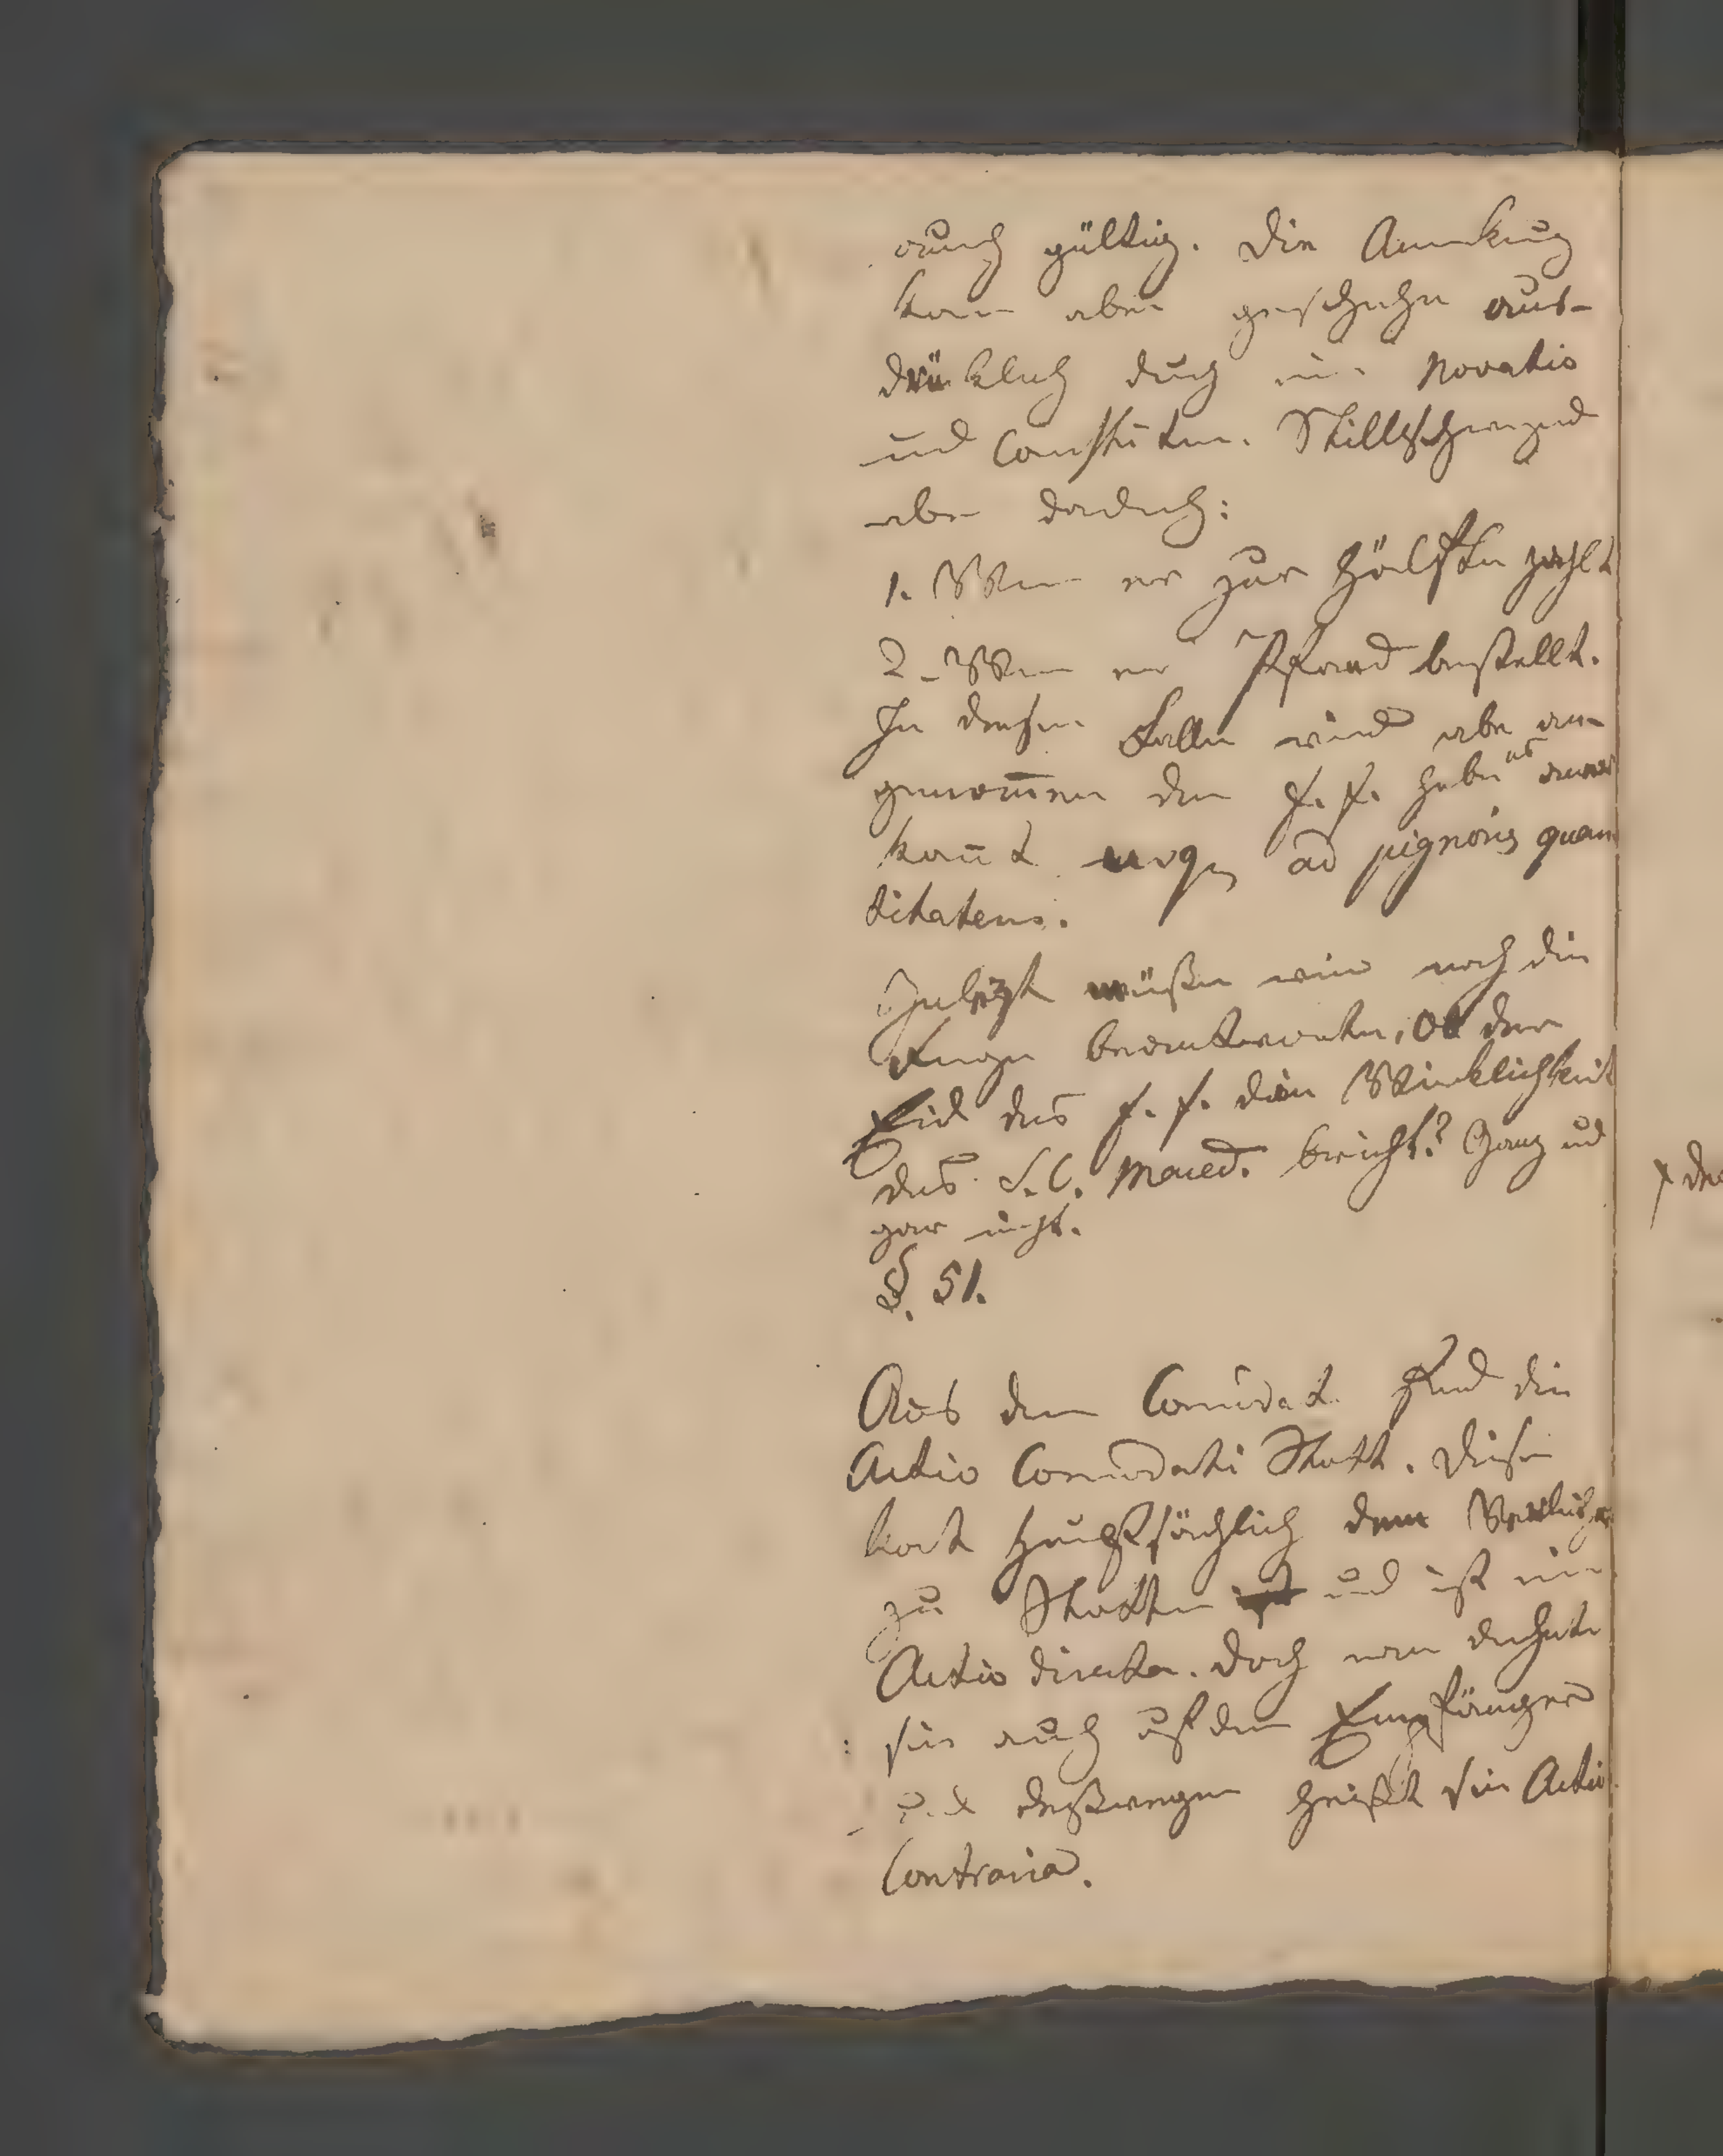 auch gültig. Die Anerkeñug
kan aber geschehen aus-
drüklich durch eine Novatio
und Constitutum. Stillschweigend
aber dadurch:
1. Wenn er zur Hälften zahlt
2. Wenn er Pfand bestellt.
In diesem Falle wird aber an-
genom̅en der f. f. habe es aner
kañt usq. ad pignoris quan
titatem.
Zulezt müßen wir noch die
Frage beantworten, Ob der
Eid des f. f. die Wirklichkeit
des S. C. Maced. bricht? Ganz und
gar nicht.
§. 51.
Aus dem Com̅odat find die
Actio Com̅odati Statt. Diese
komt Hauptsächlich dem Verleiher
zu Statten und ist eine
Actio directa. Doch man dehnte
sie auch auf den Empfänger
und deßwegen heißt sie Actio
Contraria.